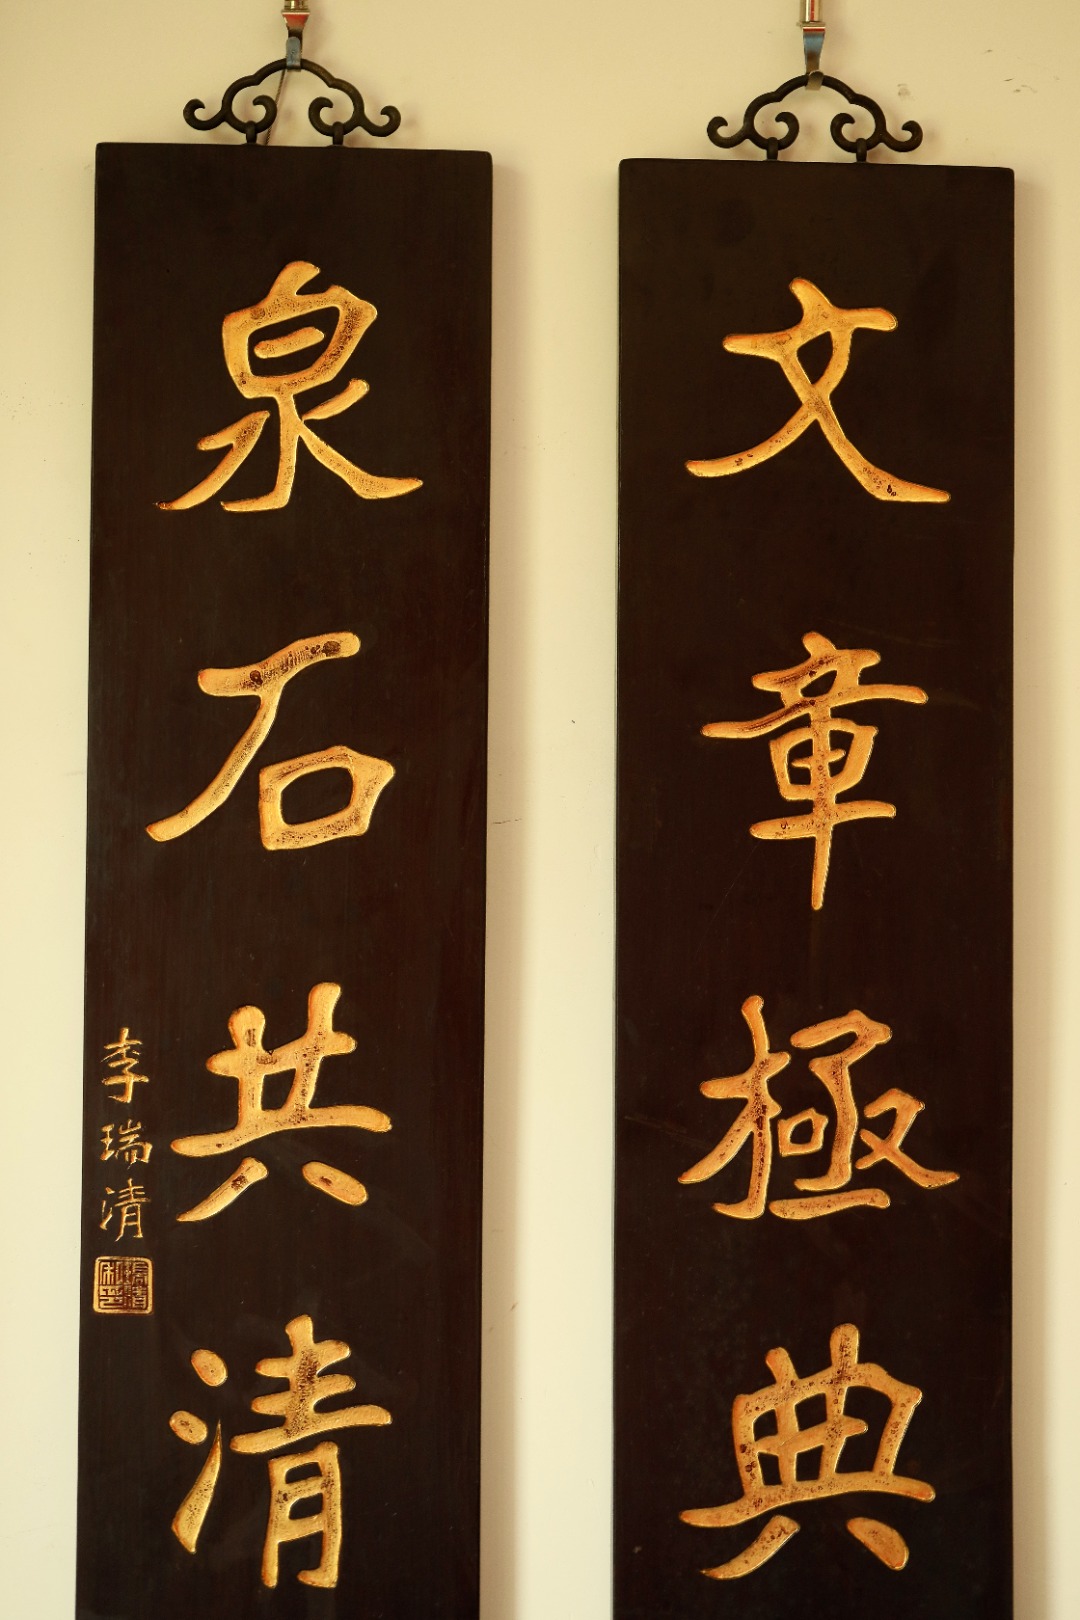 文章極典
泉石共清
李瑞清